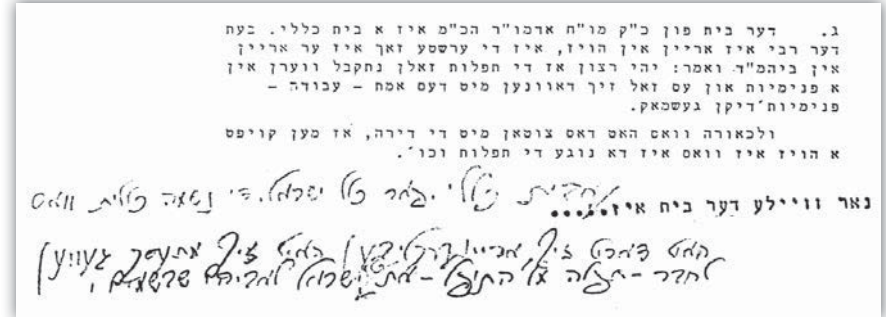 ג. דער בית פון כ"ק מו"ח אדמו"ר הכ"מ איז א בית כללי. בעת
דער רבי איז אריין אין הויז, איז די ערשטע זאך איז ער אריין
אין ביהמ"ד ואמר: יהי רצון אז די תפלות זאלן נתקבל ווערן אין
א פנימיות און עס זאל זיך דאוונען מיט דעם אמת - עבודה -
פנימיות'דיקן געשמאק.
ולכאורה וואס האט דאס צוטאן מיט די דירה, אז מען קויפט
א הויז איז וואס איז דא נוגע די תפלות וכו'.
נאר וויילע דער בית איז..... בית כללי כלל ישראל. די נשיאה כללית וואס
האט דארט זיך
לחבר ישראל לאביהם שבשמים